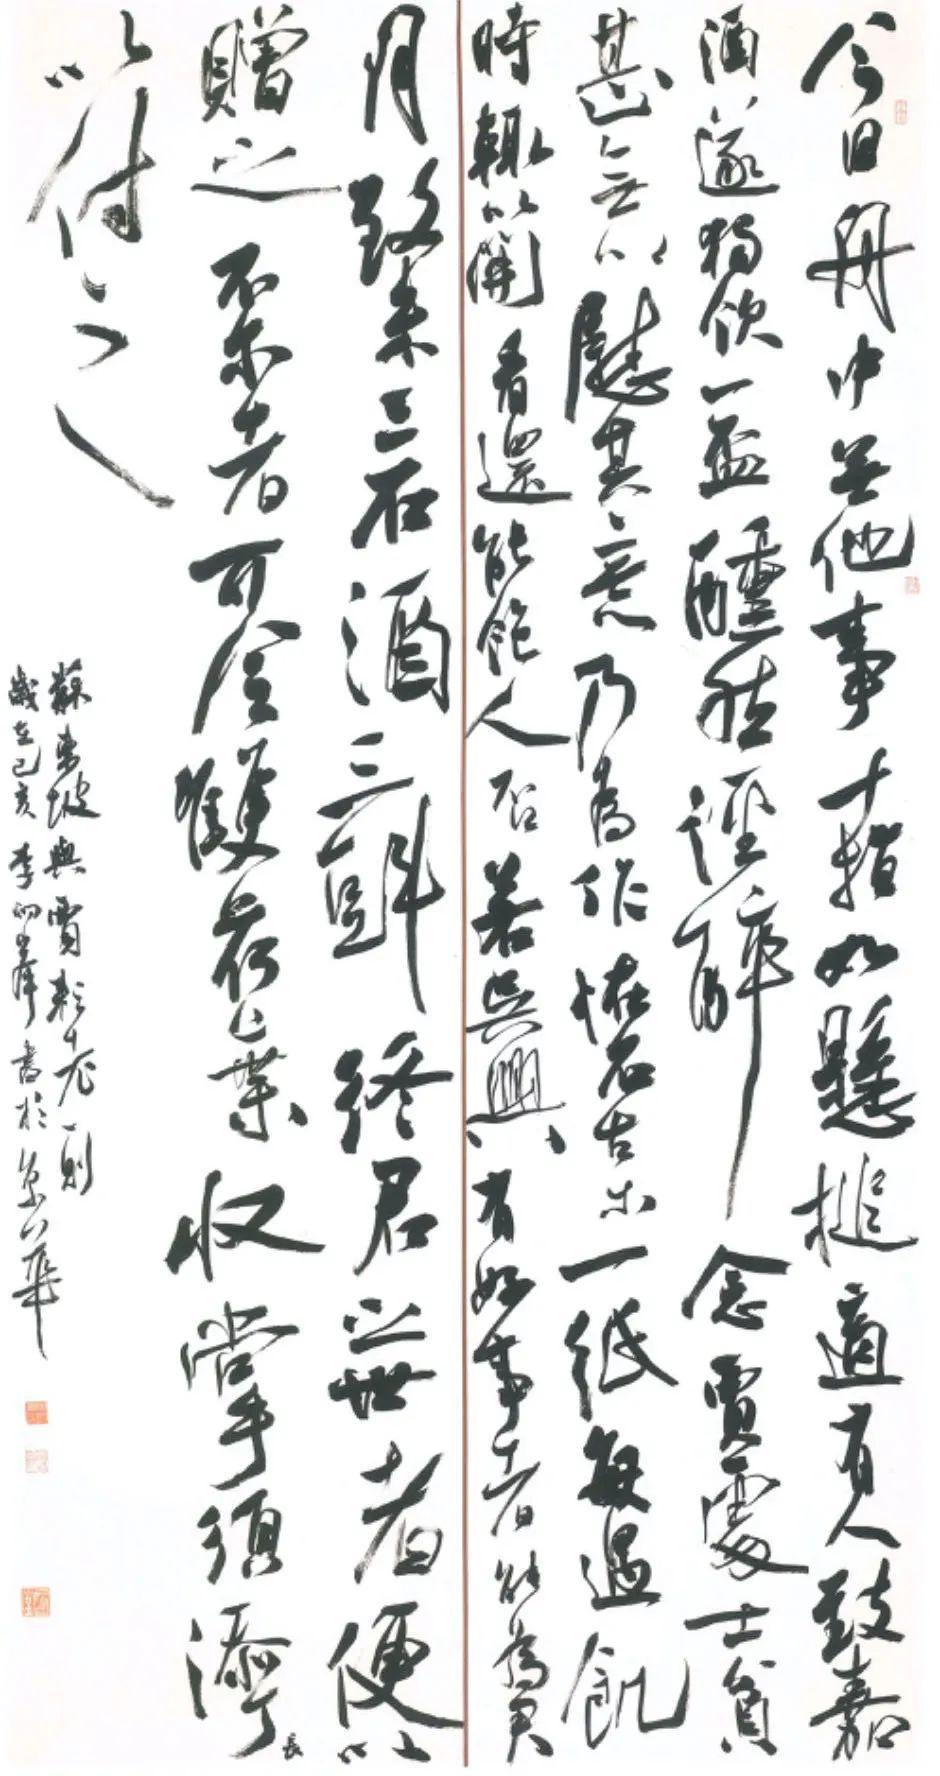 今日舟中無他事十指如懸槌適有人致嘉
酒遂獨飲一盃醺然徑醉念賈處士貧
甚無以慰其意乃為作怪石古木一紙每遇飢
時輒以開看還能飽人否若吳興有好事者能為君
月致米三石酒三斗終君之世者便以
贈之不爾者可令雙荷葉收掌須添丁長
以付之
蘇東坡與賈耘老一則
歲在己亥李峰書於京華